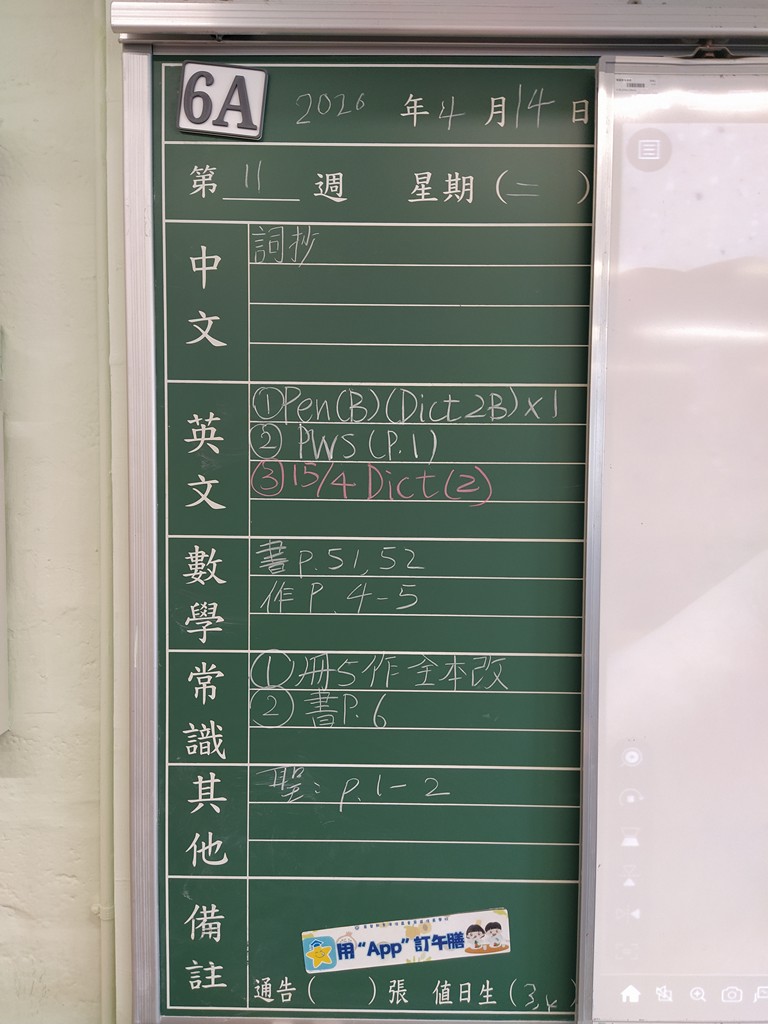 6A 2026 年 4 月 14 日
第 11 週 星期(二)
中文
詞抄
英文
①Pen(B)(Dict 2B)x1
② PWS (P.1)
③15/4 Dict(2)
數學
書 p.51,52
作 P.4-5
常識
①冊5作全本改
②書P.6
其他
聖: p.1-2
備註
用“App”訂午膳
通告( )張 值日生(3,4)